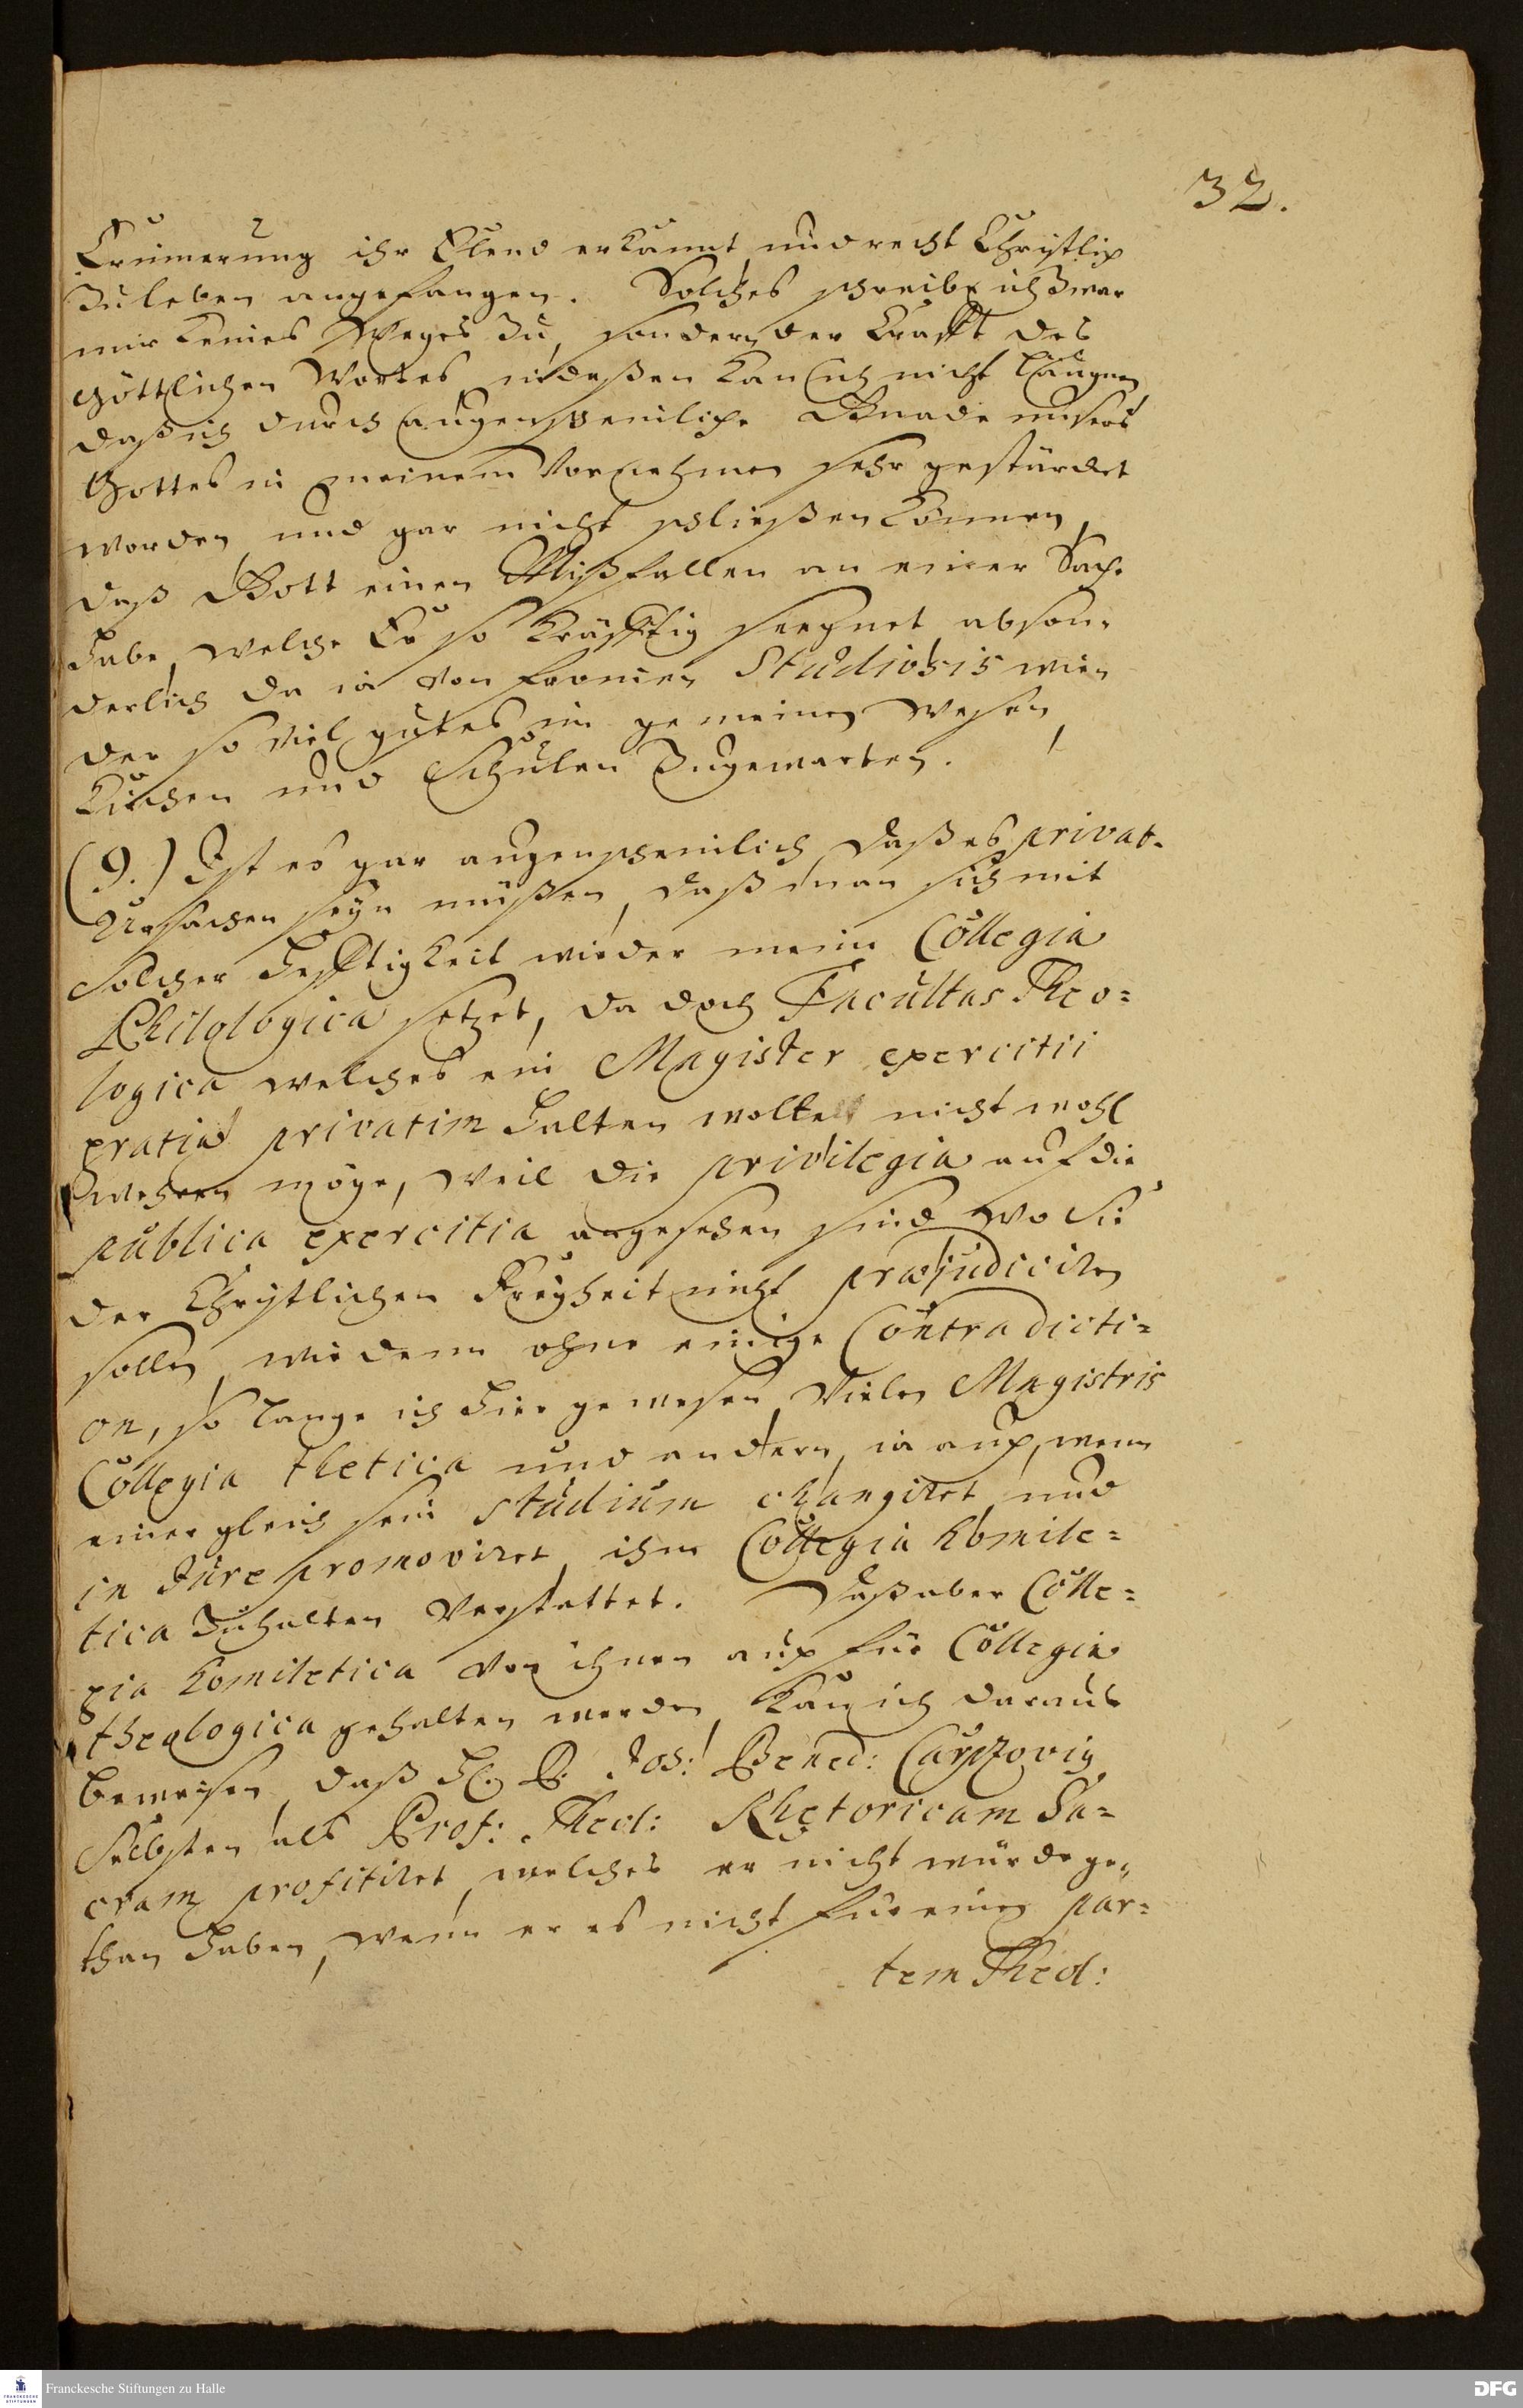 32.
Erinnerung ihr Elend erkannt, und recht Christlich
zu leben angefangen. Solches schreibe ich zwar
mir keines Weges zu, sondern der Krafft des
Göttlichen Wortes, indeßen kan ich nicht läugnen
daß ich durch augenscheinliche Gnade unsers
Gottes in meinem Vornehmen sehr gestärcket
worden, und gar nicht schließen können,
daß Gott einen Mißfallen an einer Sache
habe, welche Er so kräfftig seegnet, abson-
derlich da ia von fromen Studiosis wie-
der so viel gutes im gemeinen Wesen,
Kirchen und Schulen zugewarten.
(9.) Ist es gar augenscheinlich, daß es privat-
Ursachen seyn müßen, daß man sich mit
solcher Hefftigkeit wieder meine Collegia
Philologica setzet, da doch Facultas Theo=
logica welches ein Magister exercitii
gratia privatim halten wolte nicht wohl
wehren möge, weil die privilegia auf die
publica exercitia angesehen sind, wo sie
der Christlichen Freyheit nicht præjudiciren
sollen, wie denn ohne einige Contradicti=
on, so lange ich hier gewesen, vielen Magistris
Collegia thetica und andern, ia auch, wenn
einer gleich sein studium changiret, und
in Jure promoviret, ihm Collegia homile=
tica zuhalten verstattet. Daß aber Colle=
gia homiletica von ihnen auch für Collegia
theologica gehalten werden, kan ich daraus
beweisen, daß H. D. Joh: Bened: Carpzovig
selbsten als Prof: Theol: Rhetoricam Sa=
cram profitiret, welches er nicht würde ge-
than haben, wenn er es nicht für einen par=
tem Theol:
Franckesche Stiftungen zu Halle
DFG